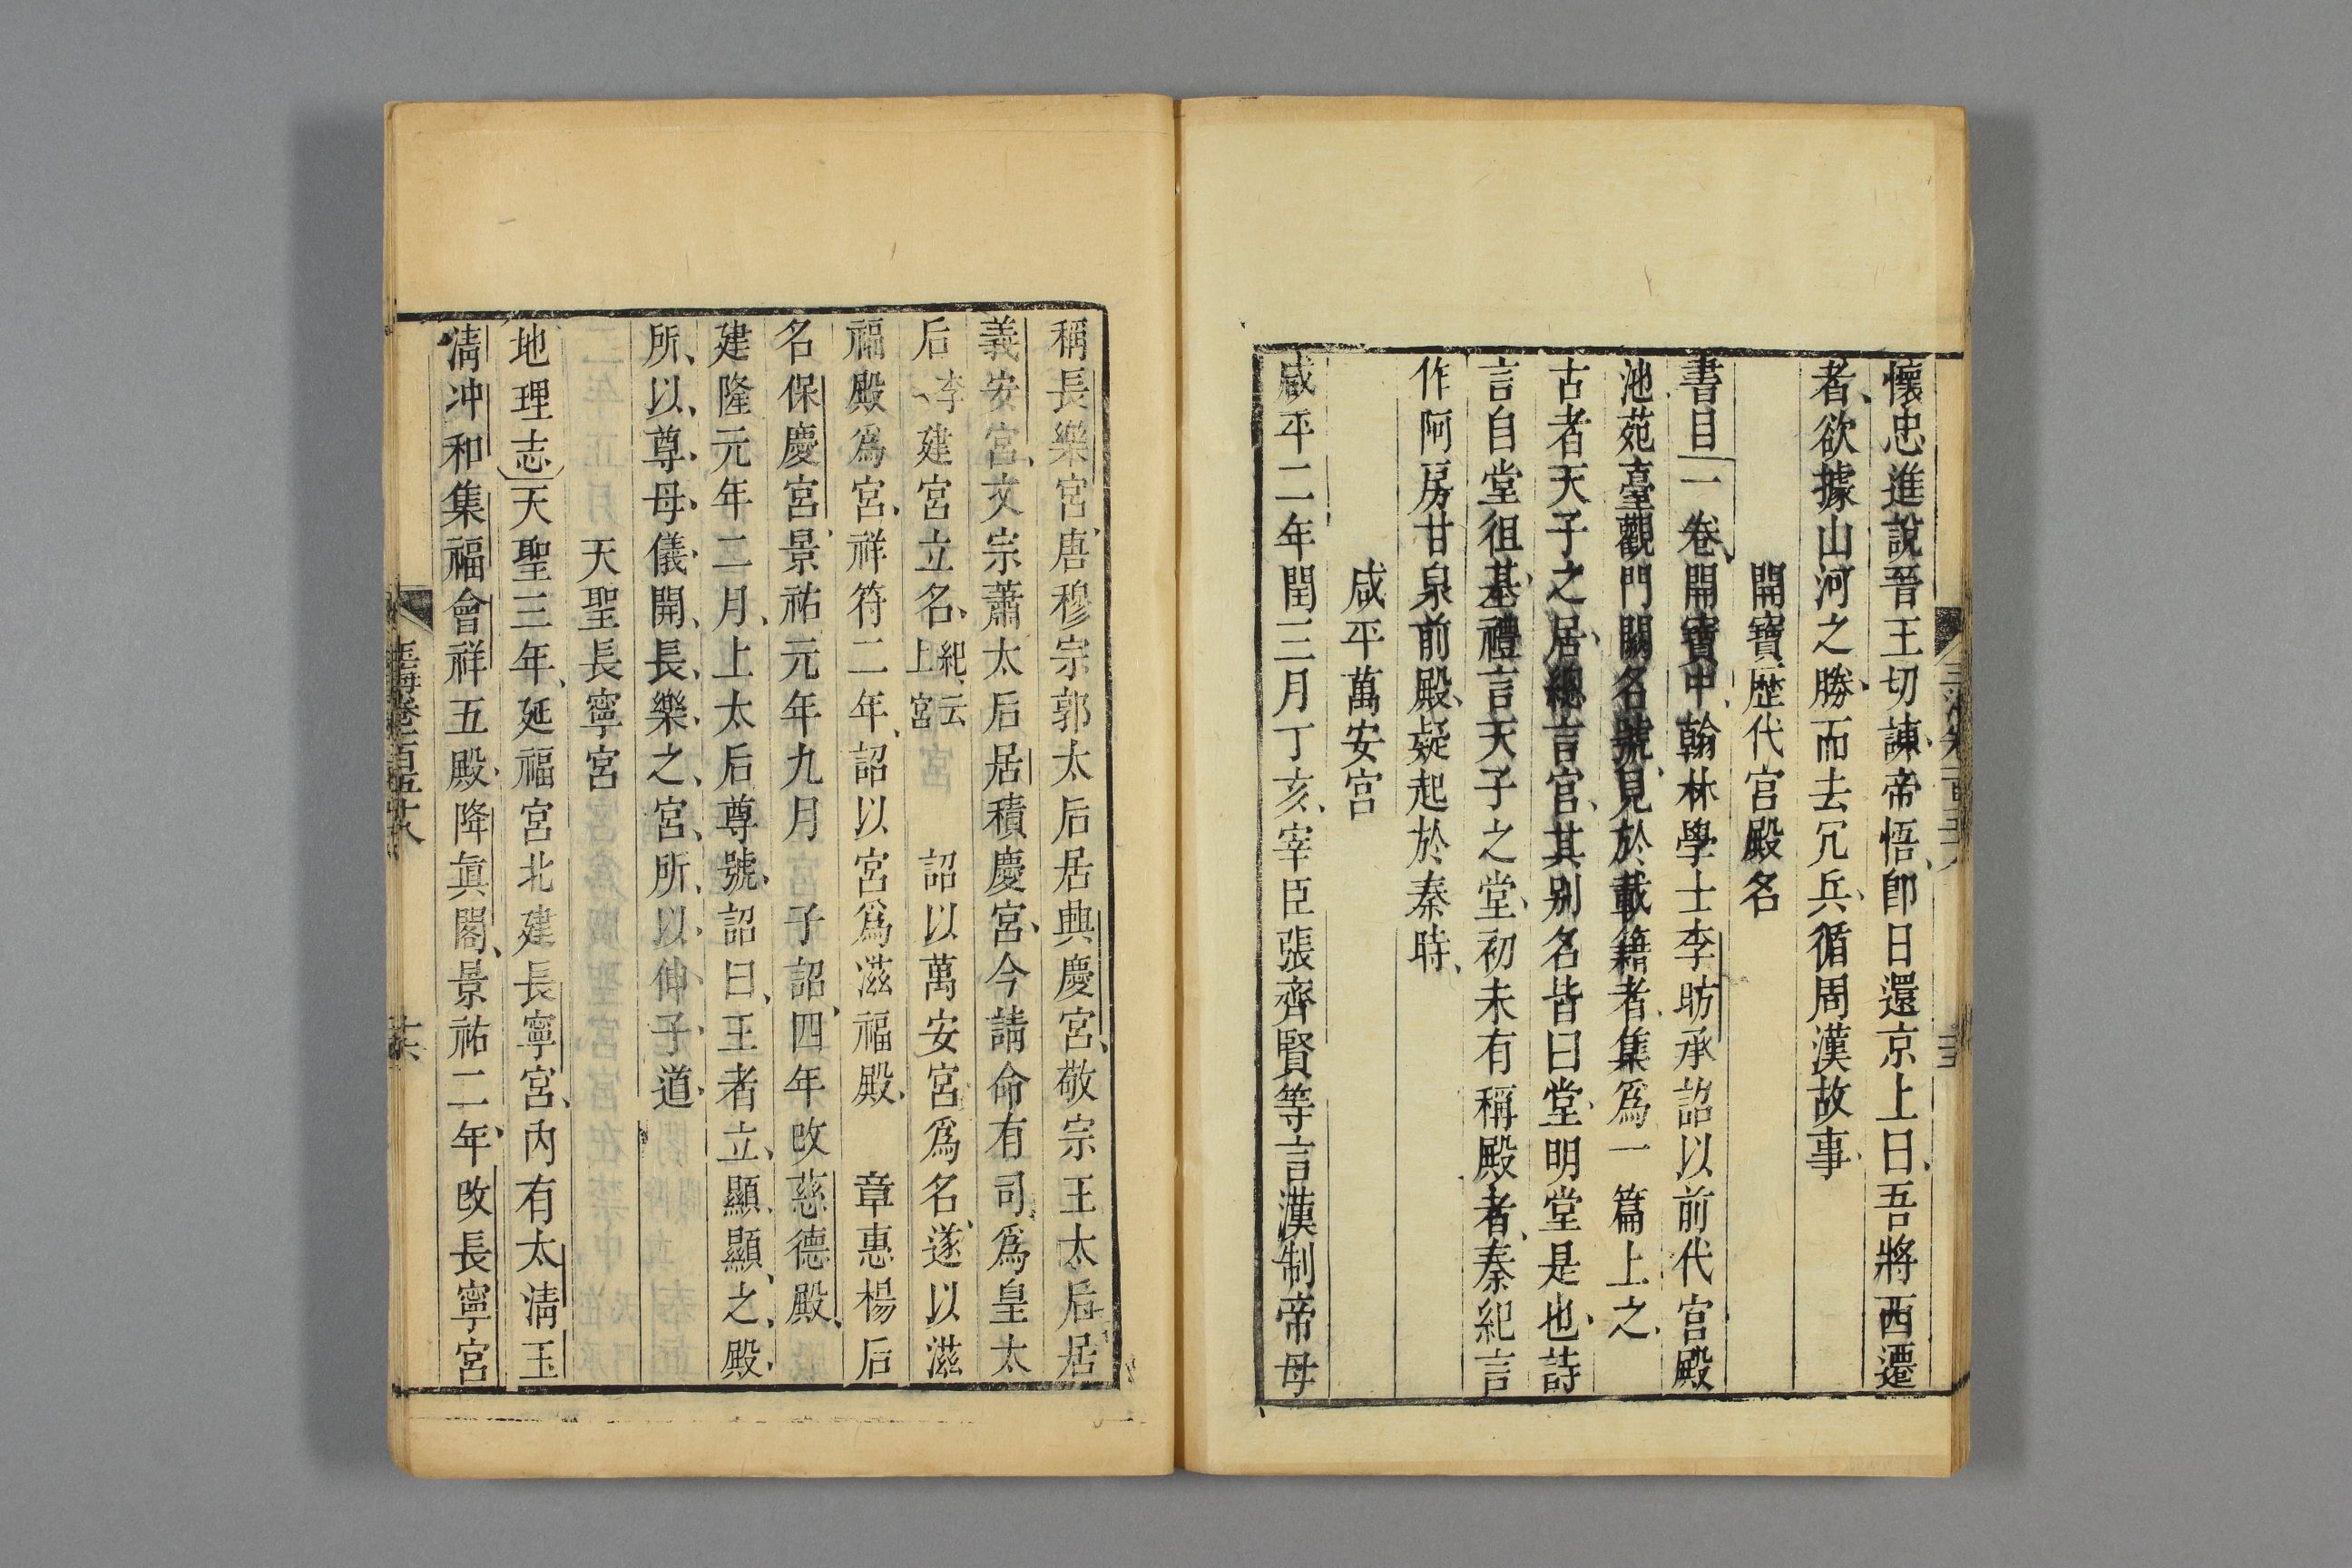 懷忠進說晉王切諫帝悟卽日還京上曰吾將西遷
者欲據山河之勝而去冗兵循周漢故事
開寶歷代宮殿名
書目一卷開寶中翰林學士李昉承詔以前代宮殿
池苑臺觀門闕名號見於載籍者集爲一篇上之
古者天子之居總言宮其別名皆曰堂明堂是也詩
言自堂徂基禮言天子之堂初未有稱殿者秦紀言
作阿房甘泉前殿疑起於秦時
咸平萬安宮
咸平二年閏三月丁亥宰臣張齊賢等言漢制帝母
稱長樂宮唐穆宗郭太后居興慶宮敬宗王太后居
義安宮文宗蕭太后居積慶宮今請命有司爲皇太
后李建宮立名紀云上宮 詔以萬安宮爲名遂以滋
福殿爲宮祥符二年詔以宮爲滋福殿 章惠楊后
名保慶宮景祐元年九月 子詔四年改慈德殿
建隆元年二月上太后尊號詔曰王者立顯顯之殿
所以尊母儀開長樂之宮所以伸子道
天聖長寧宮
地理志天聖三年延福宮北建長寧宮內有太淸玉
淸沖和集福會祥五殿降眞閣景祐二年改長寧宮
玉海卷一百五十八